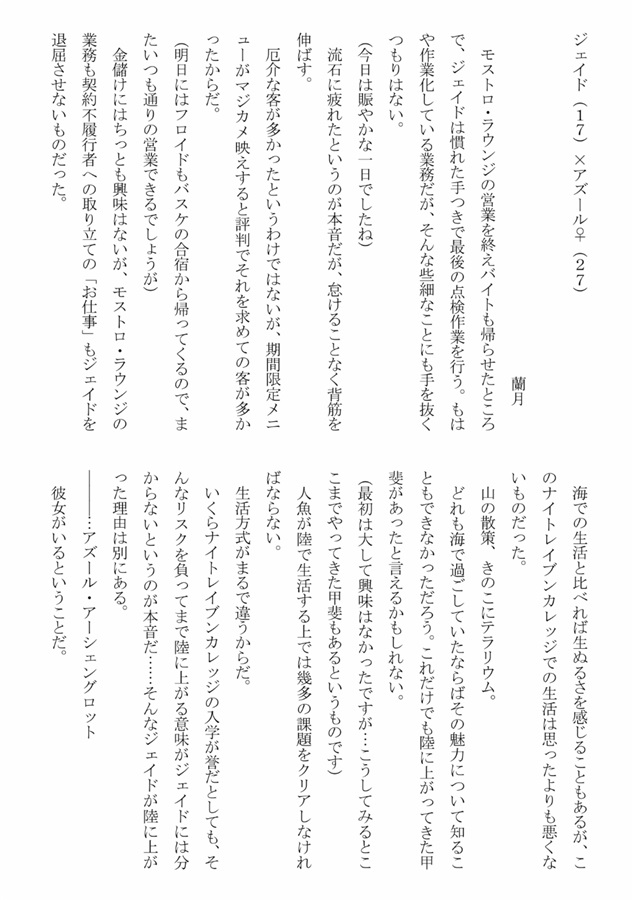 ジェイド（１７）×アズール♀（２７）
蘭月
モストロ・ラウンジの営業を終えバイトも帰らせたところ
で、ジェイドは慣れた手つきで最後の点検作業を行う。もは
や作業化している業務だが、そんな些細なことにも手を抜く
つもりはない。
（今日は賑やかな一日でしたね）
流石に疲れたというのが本音だが、怠けることなく背筋を
伸ばす。
厄介な客が多かったというわけではないが、期間限定メニ
ューがマジカメ映えすると評判でそれを求めての客が多か
ったからだ。
（明日にはフロイドもバスケの合宿から帰ってくるので、ま
たいつも通りの営業できるでしょうが）
金儲けにはちっとも興味はないが、モストロ・ラウンジの
業務も契約不履行者への取り立ての「お仕事」もジェイドを
退屈させないものだった。
海での生活と比べれば生ぬるさを感じることもあるが、こ
のナイトレイブンカレッジでの生活は思ったよりも悪くな
いものだった。
山の散策、きのこにテラリウム。
どれも海で過ごしていたならばその魅力について知るこ
ともできなかっただろう。これだけでも陸に上がってきた甲
斐があったと言えるかもしれない。
（最初は大して興味はなかったですが…こうしてみるとこ
こまでやってきた甲斐もあるというものです）
人魚が陸で生活する上では幾多の課題をクリアしなけれ
ばならない。
生活方式がまるで違うからだ。
いくらナイトレイブンカレッジの入学が誉だとしても、そ
んなリスクを負ってまで陸に上がる意味がジェイドには分
からないというのが本音だ……そんなジェイドが陸に上が
った理由は別にある。
―――…アズール・アーシェングロット
彼女がいるということだ。